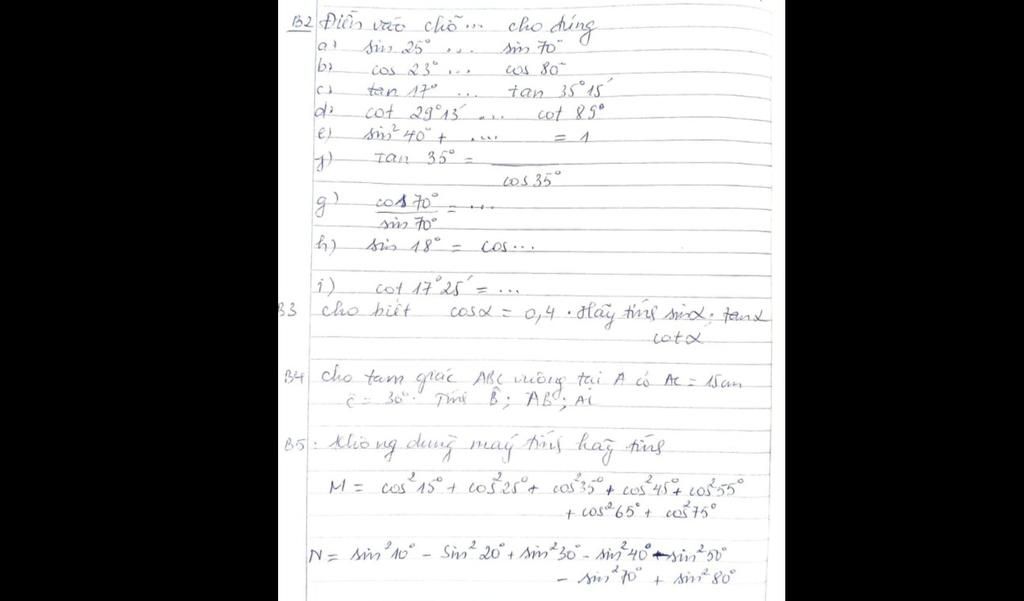 B2 Điền vào chỗ... cho đúng
a) sin 25° ... sin 70°
b) cos 23° ... cos 80°
c) tan 17° ... tan 35°15'
d) cot 29°13' ... cot 85°
e) sin² 40° + .... = 1
f) tan 35° = ———
cos 35°
g) cos 70° / sin 70° = ...
h) sin 18° = cos...
i) cot 17°25' = ...
B3 cho biết cosα = 0,4. Hãy tính sinα; tanα
cotα
B4 cho tam giác ABC vuông tại A có AC = 15cm
Ĉ = 30°. Tính B̂; AB;
B5: Không dùng máy tính hãy tính
M = cos²15° + cos²25° + cos²35° + cos²45° + cos²55°
+ cos²65° + cos²75°
N = sin²10° - sin²20° + sin²30° - sin²40° - sin²50°
- sin²70° + sin²80°